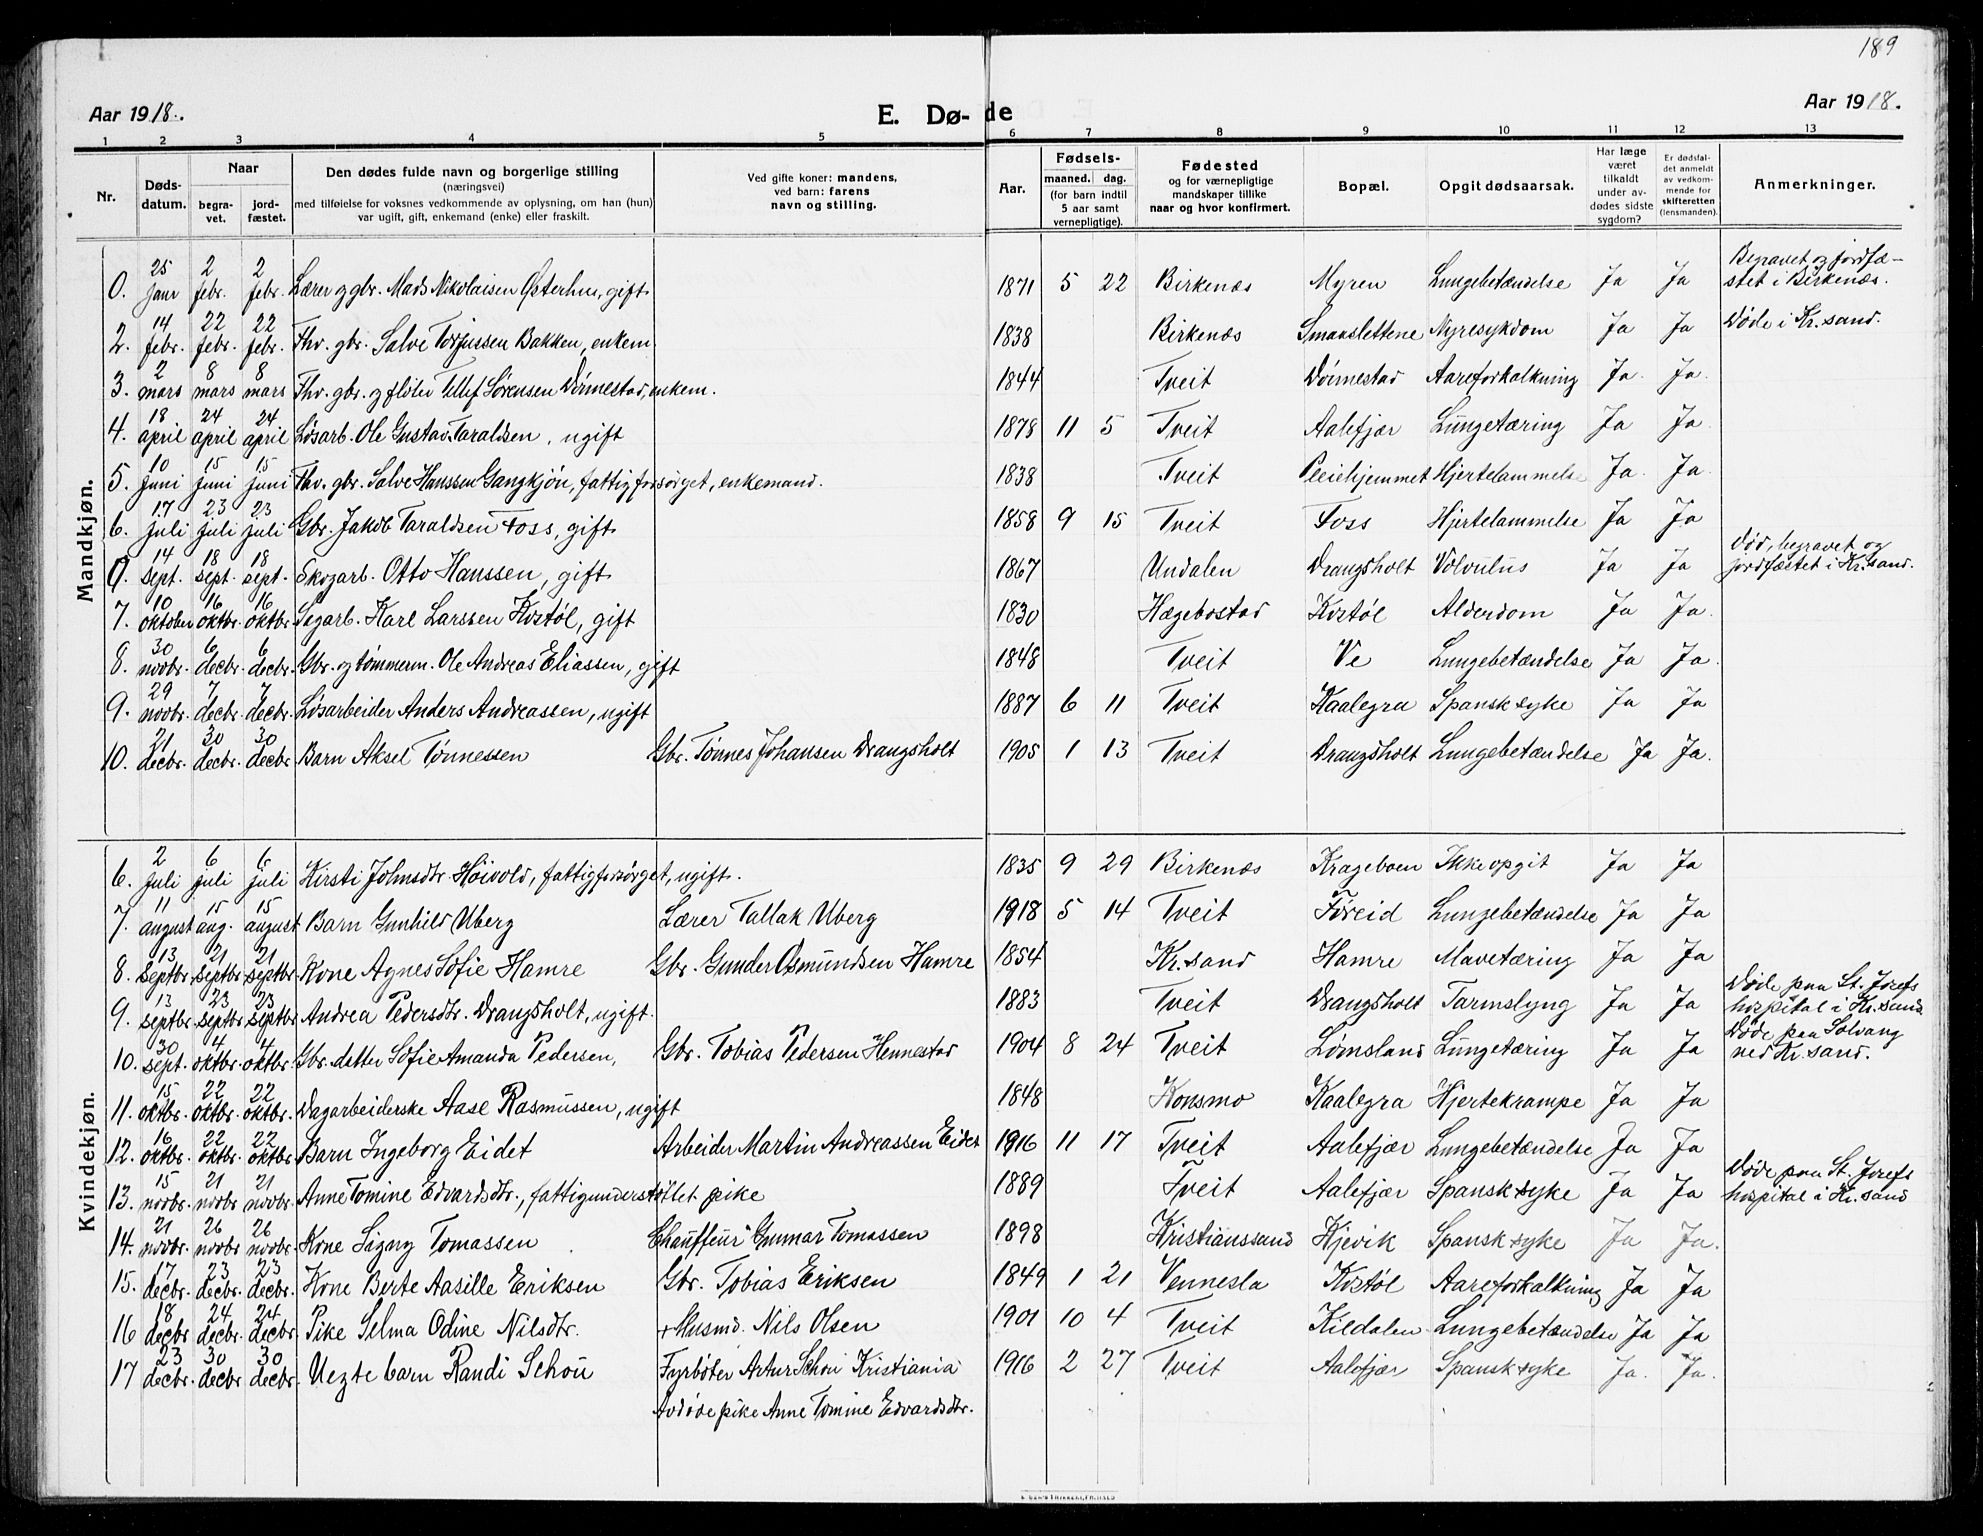 189
Aar 1918.
E. Dø-de
Aar 1918.
1 2 3 4 5 6 7 8 9 10 11 12 13
Nr. Døds-datum. Naar begra-vet. jord-fæstet. Den dødes fulde navn og borgerlige stilling (næringsvei) med tilføielse for voksnes vedkommende av oplysning, om han (hun) var ugift, gift, enkemand (enke) eller fraskilt. Ved gifte koner: mandens, ved barn: farens navn og stilling. Aar. Fødsels- maaned. dag. (for barn indtil 5 aar samt vernepligtige). Fødested og for værnepligtige mandskaper tillike naar og hvor konfirmert. Bopæl. Opgit dødsaarsak. Har læge været tilkaldt under av-dødes sidste sygdom? Er dødsfal-det anmeldt av vedkom-mende for skifteretten (lensmanden). Anmerkninger.
Mandkjøn.
0. 25 janr 2 febr. 2 febr. Lærer og gbr. Mads Nikolaisen Østerhus, gift 1871 5 22 Birkenæs Myren Lungebetændelse Ja Ja Begravet og jordfæ-stet i Birkenæs.
2. 14 febr. 22 febr. 22 febr. Fhv. gbr. Salve Torjussen Bakken, enkem. 1838 Birkenæs Smaaslettene Nyresykdom Ja Ja Døde i Kr.sand.
3. 2 mars 8 mars 8 mars Fhv. gbr. og fløter Tellef Sørensen Dønnestad, enkem. 1844 Tveit Dønnestad Aareforkalkning Ja. Ja.
4. 18 april 24 april 24 april Løsarb. Ole Gustav Taraldsen, ugift 1878 11 5 Tveit Aalefjær Lungetæring Ja Ja.
5. 10 juni 15 juni 15 juni Fhv. gbr. Salve Hanssen Gangkjøn, fattigforsørget, enkemand. 1838 Tveit Pleiehjemmet Hjertelammelse Ja. Ja.
6. 17 juli 23 juli 23 juli Gbr. Jakob Taraldsen Foss, gift 1858 9 15 Tveit Foss Hjertelammelse Ja Ja
0. 14 sept. 18 sept. 18 sept. Skogarb. Otto Hanssen, gift 1867 Undalen Drangsholt Volvulus Ja Ja Død, begravet og jordfæstet i Kr.sand.
7. 10 oktober 16 oktbr. 16 oktbr. Segarb. Karl Larssen Kostøl, gift 1830 Hægebostad Kostøl Alderdom Ja Ja.
8. 30 novbr. 6 decbr. 6 decbr. Gbr. og tømmerm. Ole Andreas Eliassen, gift 1848 Tveit Ve Lungebetændelse Ja Ja.
9. 29 novbr. 7 decbr. 7 decbr. Løsarbeider Anders Andreassen, ugift 1887 6 11 Tveit Kaalegra Spansk syke Ja Ja
10. 21 decbr. 30 decbr. 30 decbr. Barn Aksel Tønnessen Gbr. Tønnes Johansen Drangsholt 1905 1 13 Tveit Drangsholt Lungebetændelse Ja Ja.
Kvindekjøn.
6. 2 juli 6 juli 6 juli Kirsti Johnsdtr Høivold, fattigforsørget, ugift. 1835 9 29 Birkenæs Krageboen Ikke opgit Ja Ja
7. 11 august 15 aug. 15 august Barn Gunhild Uberg Lærer Tallak Uberg 1918 5 14 Tveit Føreid Lungebetændelse Ja Ja
8. 13 septbr. 21 septbr. 21 septbr. Kone Agnes Sofie Hamre Gbr. Gunder Osmundsen Hamre 1854 Kr.sand Hamre Mavetæring Ja Ja
9. 13 septbr. 23 septbr. 23 septbr. Andrea Pedersdtr. Drangsholt, ugift. 1883 Tveit Drangsholt Tarmslyng Ja Ja Døde paa St. Josefs hospital i Kr.sand
10. 30 sept. 4 oktbr. 4 oktbr. Gbr. datter Sofie Amanda Pedersen, Gbr. Tobias Pedersen Hennestad 1904 8 24 Tveit Lømsland Lungetæring Ja Ja Døde paa Solvang ved Kr.sand.
11. 15 oktbr. 22 oktbr. 22 oktbr. Dagarbeiderske Aase Rasmussen, ugift 1848 Konsmo Kaalegra Hjertekrampe Ja Ja
12. 16 oktbr. 22 oktbr. 22 oktbr. Barn Ingeborg Eidet Arbeider Martin Andreassen Eidet 1916 11 17 Tveit Aalefjær Lungebetændelse Ja Ja
13. 15 novbr. 21 novbr 21 novbr. Anne Tomine Edvardsdtr., fattigunderstøttet pike 1889 Tveit Aalefjær Spansk syke Ja Ja Døde paa St. Josefs hospital i Kr.sand
14. 21 novbr. 26 novbr 26 novbr. Kone Signy Tomassen Chauffeur Gunnar Tomassen 1898 Kristianssand Kjevik Spansk syke Ja Ja.
15. 17 decbr. 23 decbr. 23 decbr. Kone Berte Aasille Eriksen Gbr. Tobias Eriksen 1849 1 21 Vennesla Kostøl Aareforkalkning Ja Ja
16 18 decbr. 24 decbr. 24 decbr. Pike Selma Odine Nilsdtr. + Husmd. Nils Olsen 1901 10 4 Tveit Kildalen Lungebetændelse Ja Ja
17 23 decbr. 30 decbr. 30 decbr. Uegte barn Randi Schou Fyrbøter Artur Schou Kristiania 1916 2 27 Tveit Aalefjær Spansk syke Ja. Ja.
Avdøde pike Anne Tomine Edvardsdtr.